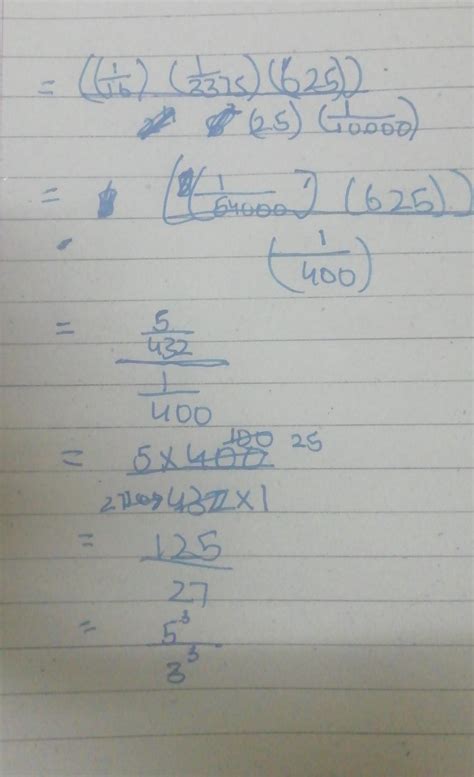 = ((1/16) (1/3375) (625))
(25) (1/10000)
= ((1/54000) (625))
(1/400)
= 5/432
1/400
= 5 × 400 100 25
27 432 × 1
= 125/27
= 5³/3³